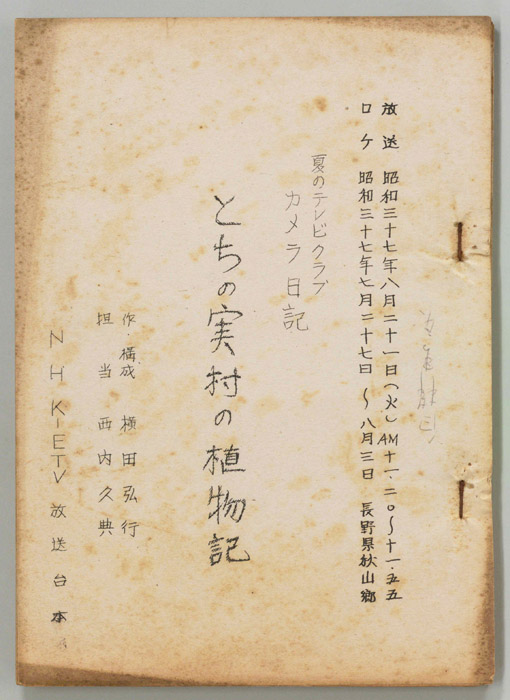 放送 昭和三十七年八月二十一日（火）AM十一・二〇～十一・五五
ロケ 昭和三十七年七月二十七日 ～八月三日 長野県秋山郷
夏のテレビクラブ
カメラ日記
とちの実村の植物記
作・構成 横田弘行
担当 西内久典
NHK-ETV放送台本